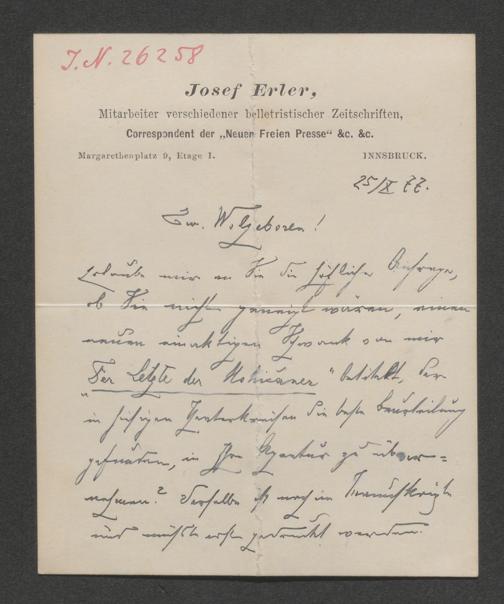 J. N. 26258
Josef Erler,
Mitarbeiter verschiedener belletristischer Zeitschriften,
Correspondent der „Neuen Freien Presse“ &c. &c.
Margarethenplatz 9, Etage I.
INNSBRUCK.
25/X 77.
Ew. Wolgeboren!
Erlaube mir an Sie die höfliche Anfrage,
ob Sie nicht geneigt wären, einen
neuen einaktigen Schwank von mir
„Der Letzte der Mohicaner“ betitelt, der
in hiesigen Theaterkreisen die beste Beurteilung
gefunden, in Ihre Agentur zu über=
nehmen? Derselbe ist noch im Manuskripte
und müßte erst gedruckt werden.